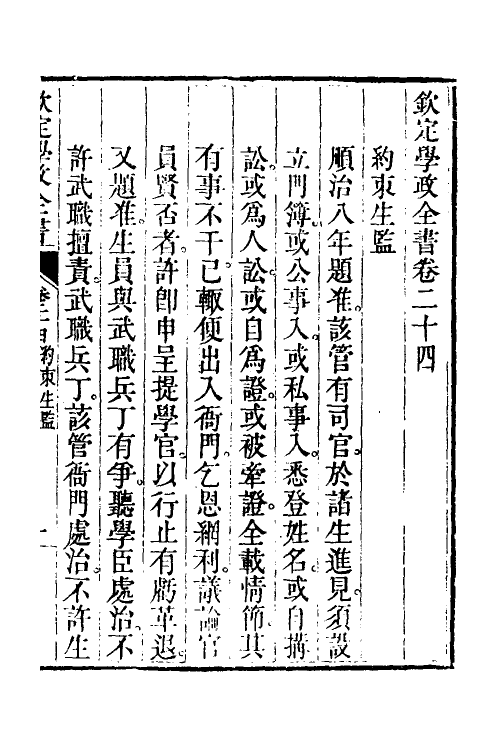 欽定學政全書卷二十四
約束生監
順治八年題准。該管有司官。於諸生進見。須設
立門簿。或公事入。或私事入。悉登姓名。或自搆
訟。或爲人訟。或自爲證。或被牽證。全載情節。其
有事不干己。輒便出入衙門。乞恩網利。議論官
員賢否者。許卽申呈提學官。以行止有虧革退。
又題准。生員與武職兵丁有爭。聽學臣處治。不
許武職擅責。武職兵丁。該管衙門處治。不許生
欽定學政全書 卷二十四 約束生監 一